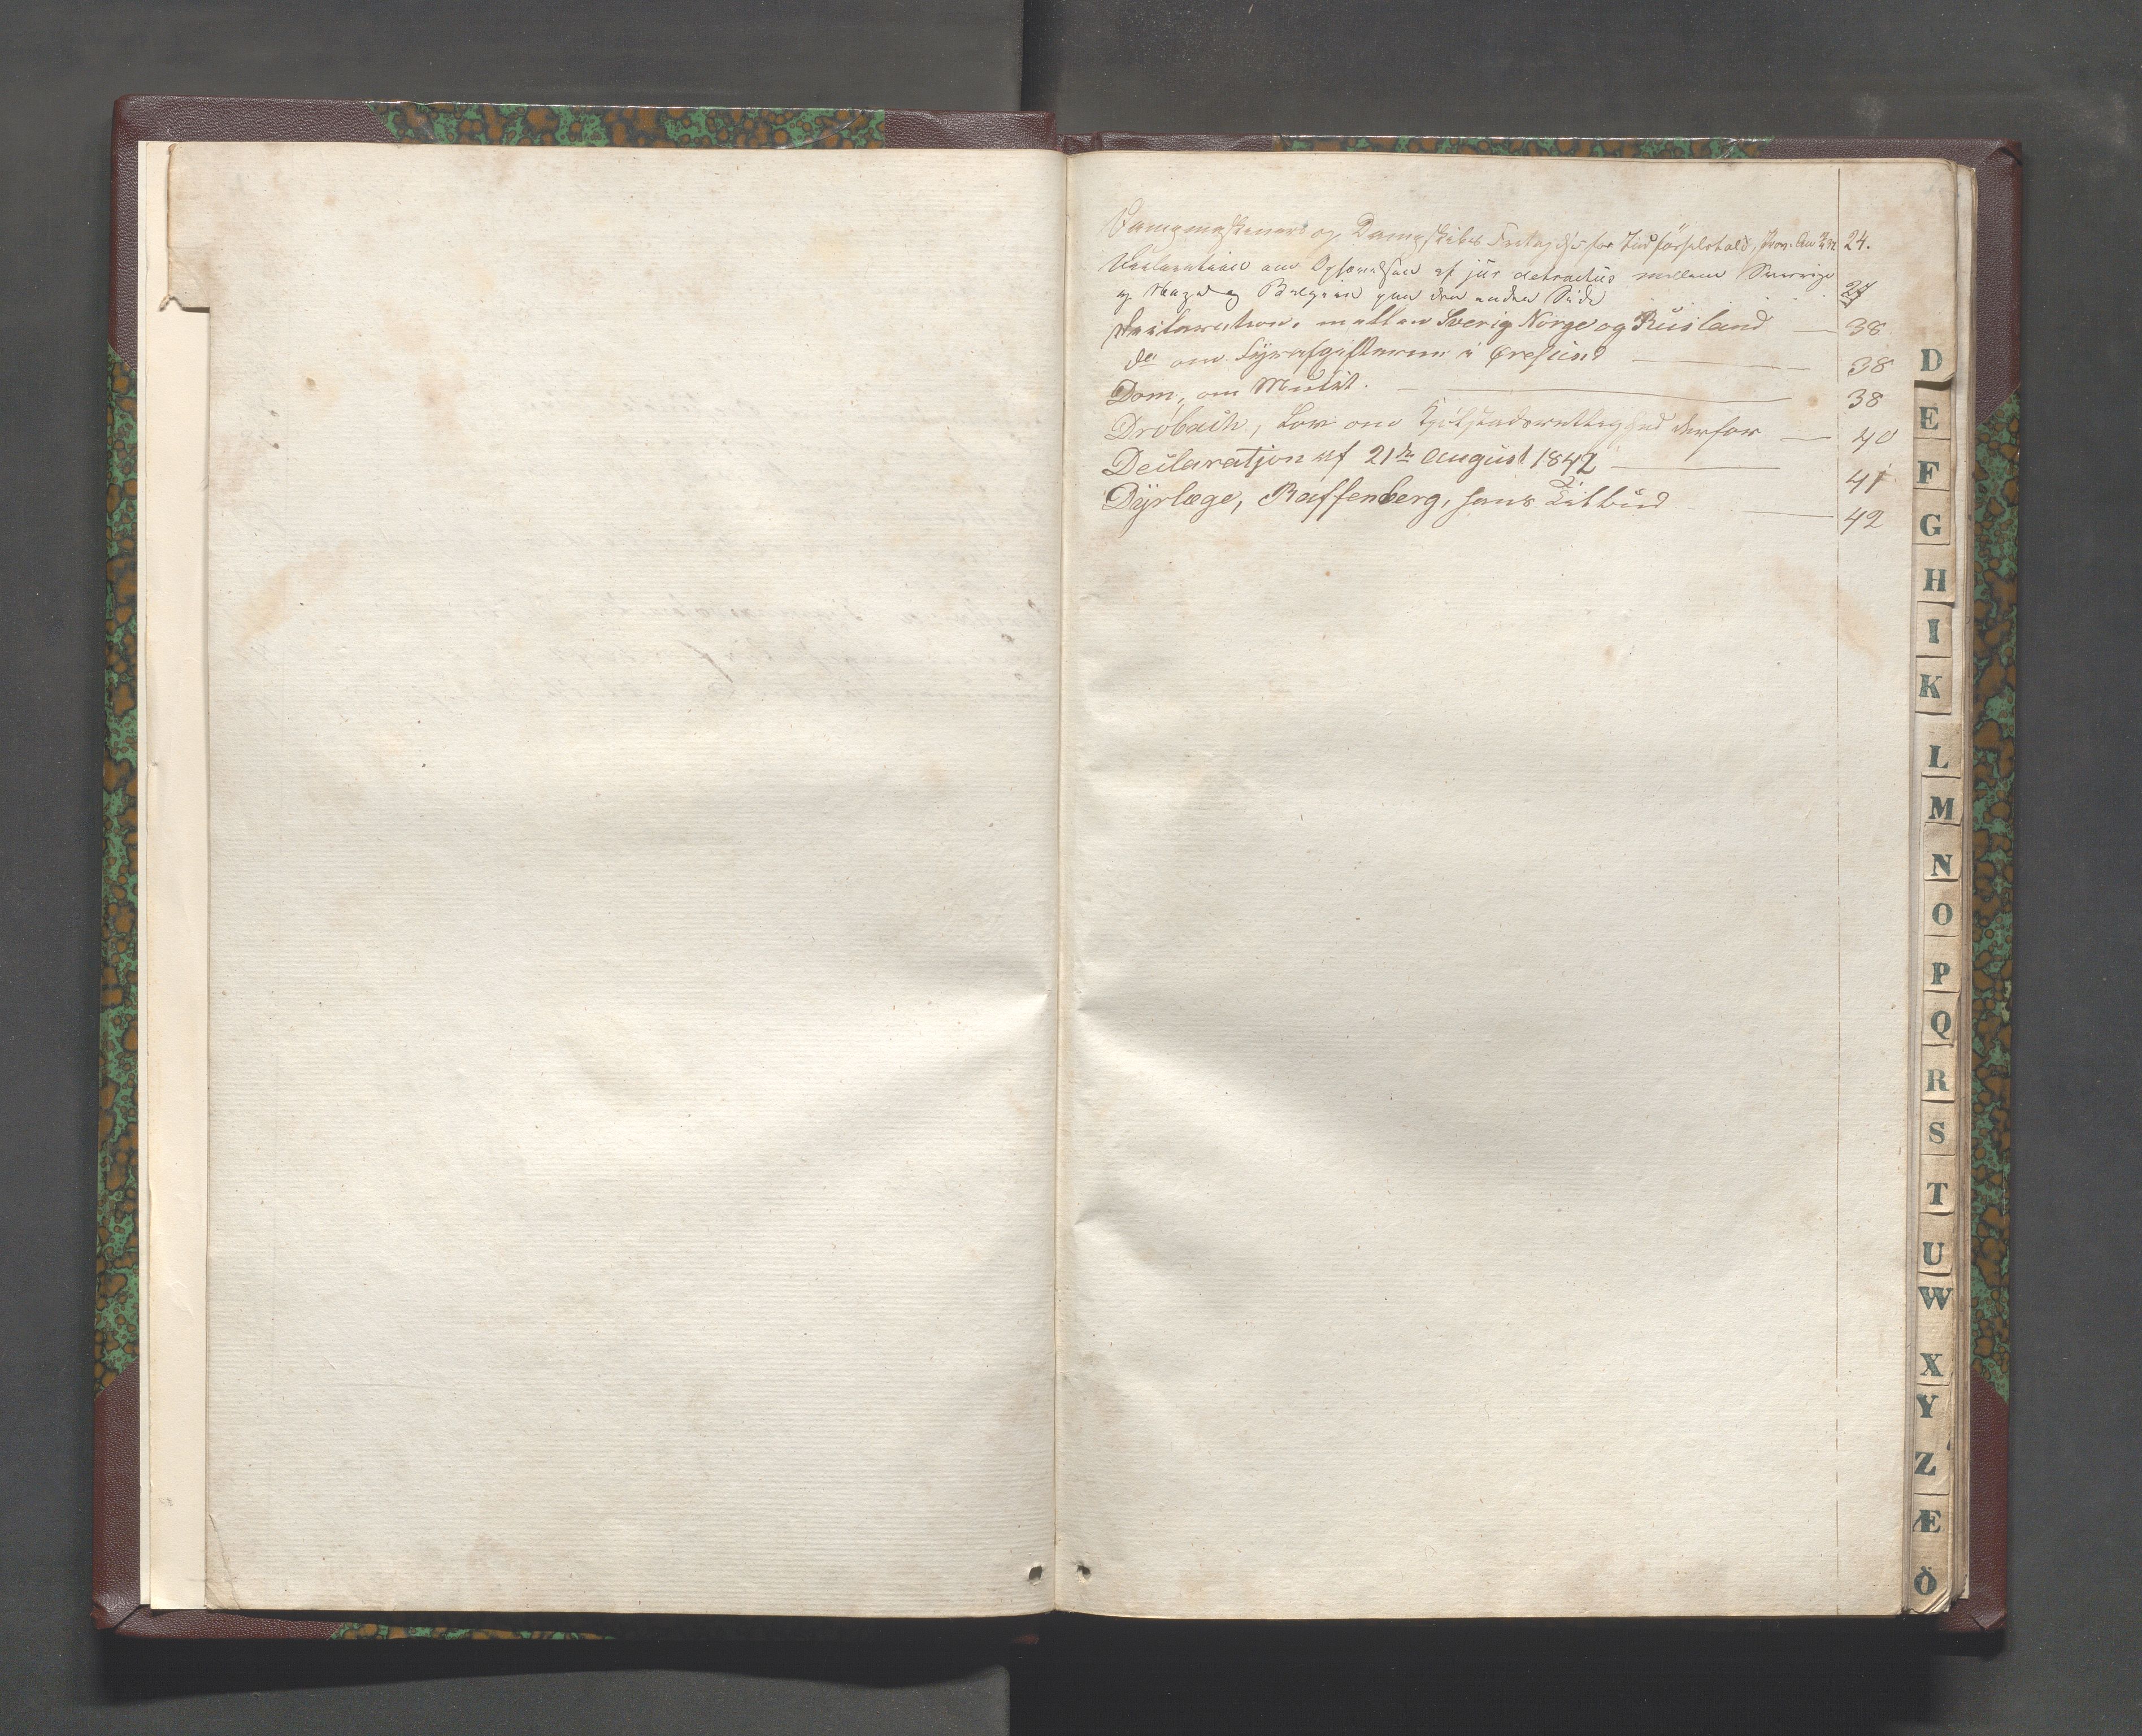 Dampmaskiners og Dampskibes Fritagelse for Indförselstold, Prov. An 24.
Declaration om Ophævelsen af jus detractus mellem Sverrige
og Norge og Belgien paa den anden Side 27
Declaration, mellem Sverig Norge og Rusland — 38
do om Fyrafgifterne i Øresund — 38
Dom, om Mulct. — 38
Dröbach, Lov om Kjöbstadsrettighed derfor — 40
Declaratjon af 21de August 1842 — 41
Dyrlæge, Raffenberg, hans Tilbud — 42
D
E
F
G
H
I
K
L
M
N
O
P
Q
R
S
T
U
W
X
Y
Z
Æ
Ö